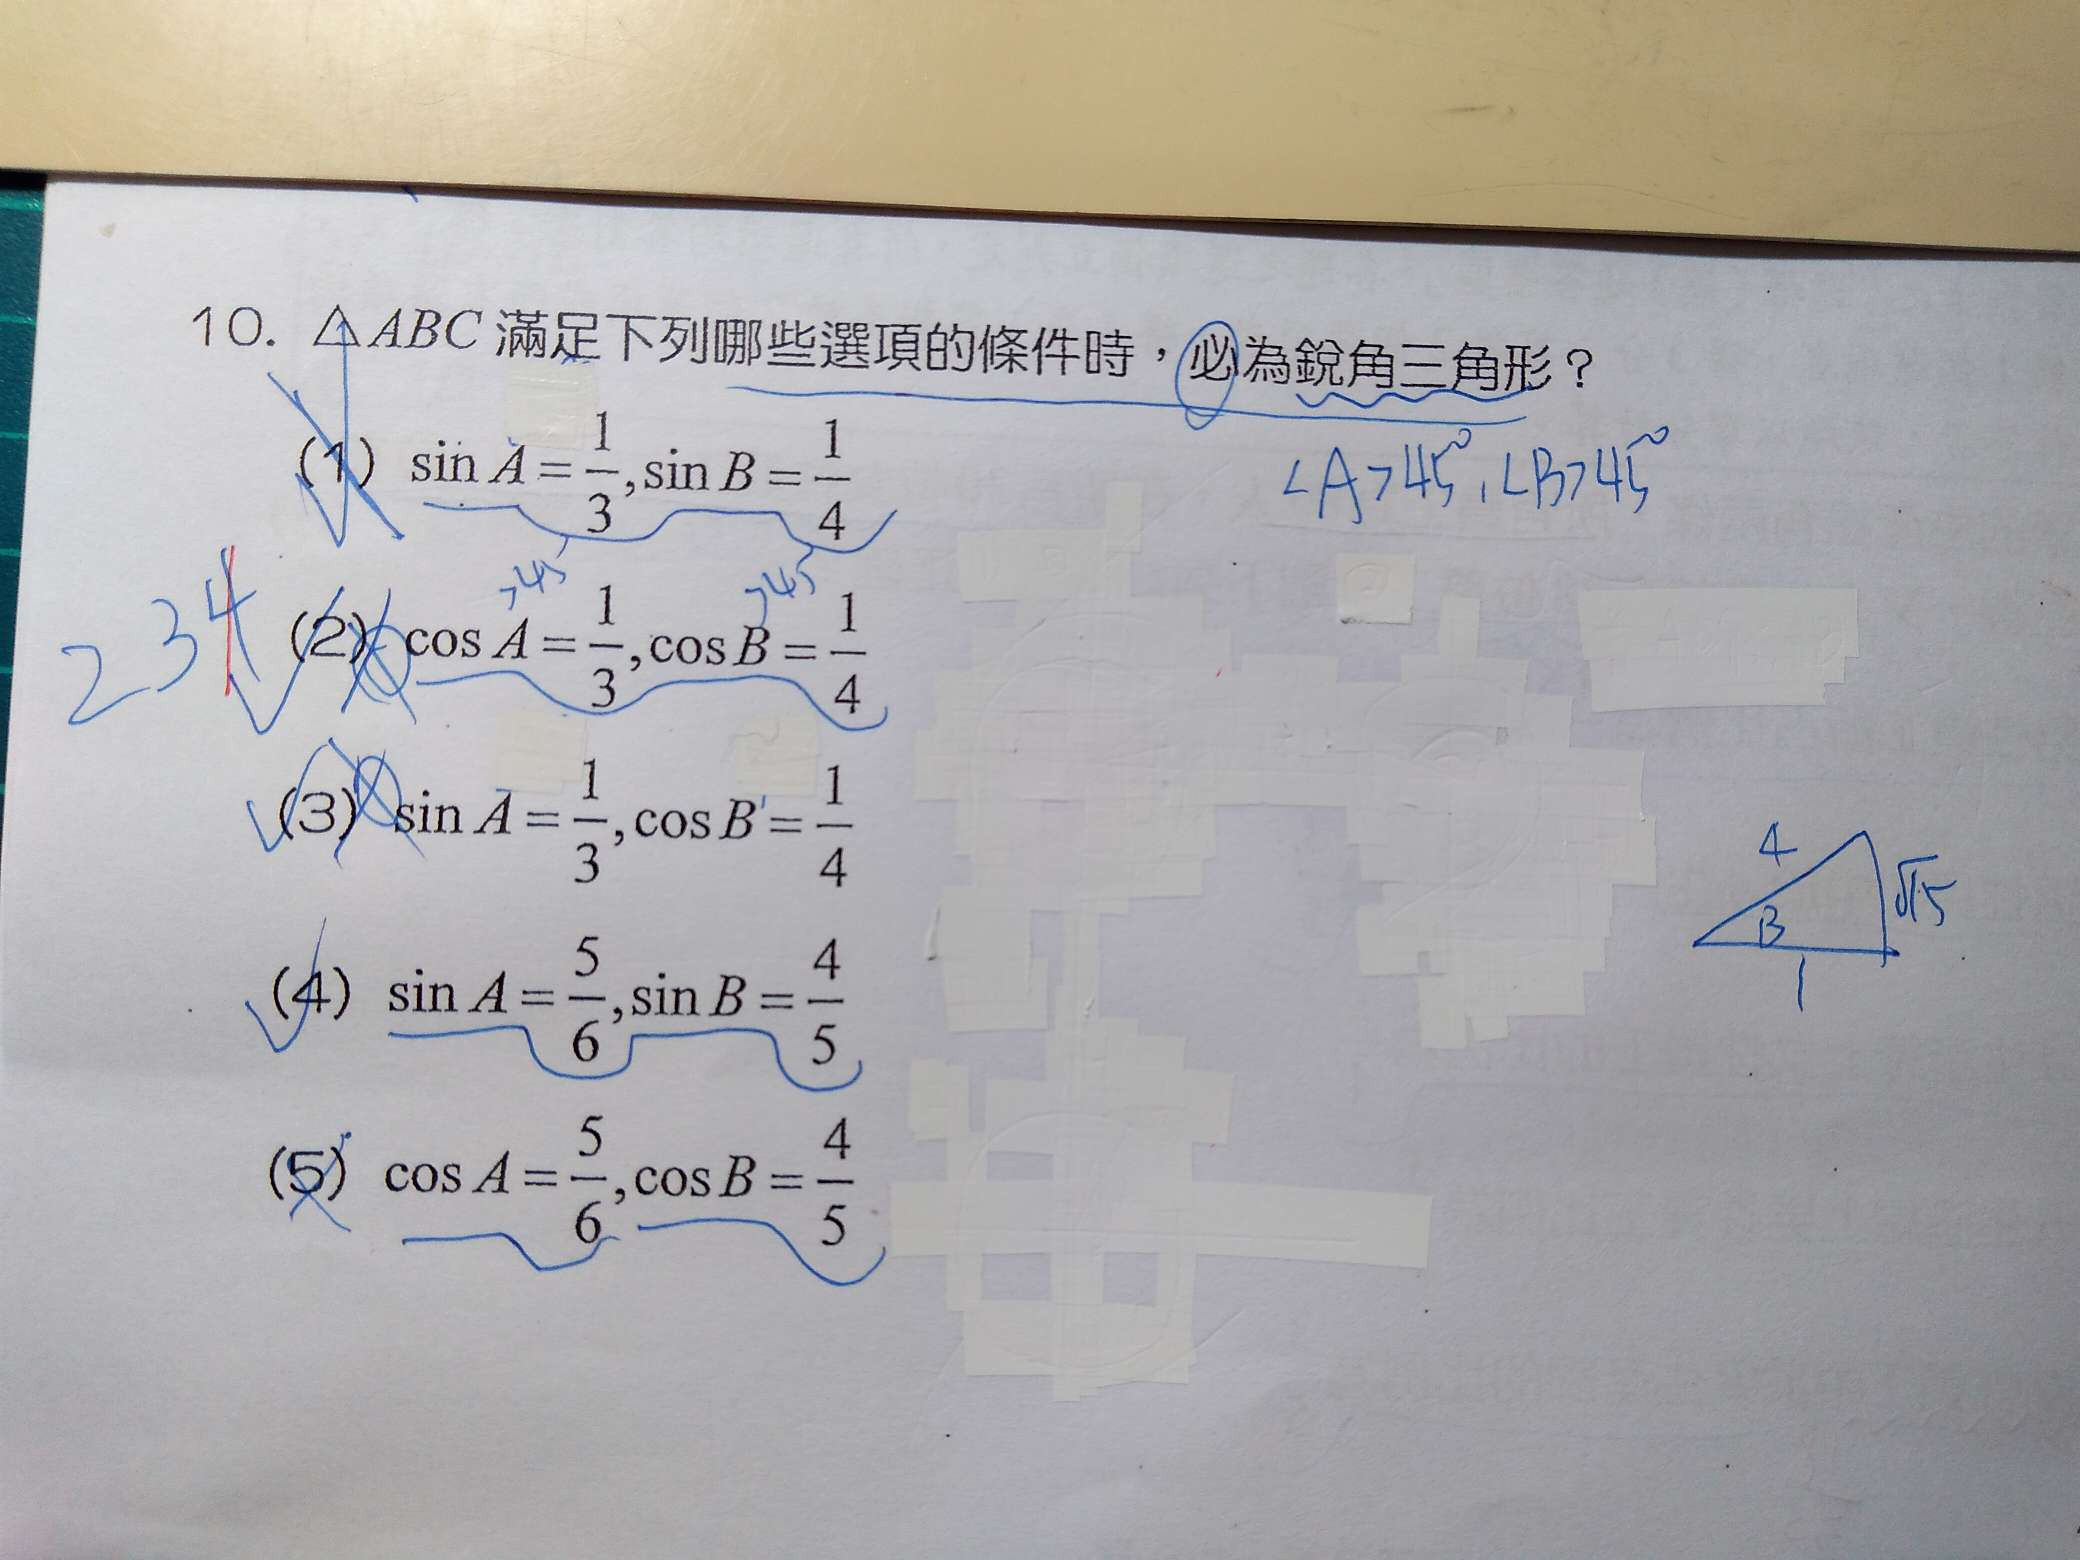 10. △ABC 滿足下列哪些選項的條件時，必為銳角三角形？
∠A>45°, ∠B>45°
(1) sin A = 1/3, sin B = 1/4
>45 >45
234
(2) cos A = 1/3, cos B = 1/4
(3) sin A = 1/3, cos B = 1/4
4 √15
B
1
(4) sin A = 5/6, sin B = 4/5
(5) cos A = 5/6, cos B = 4/5